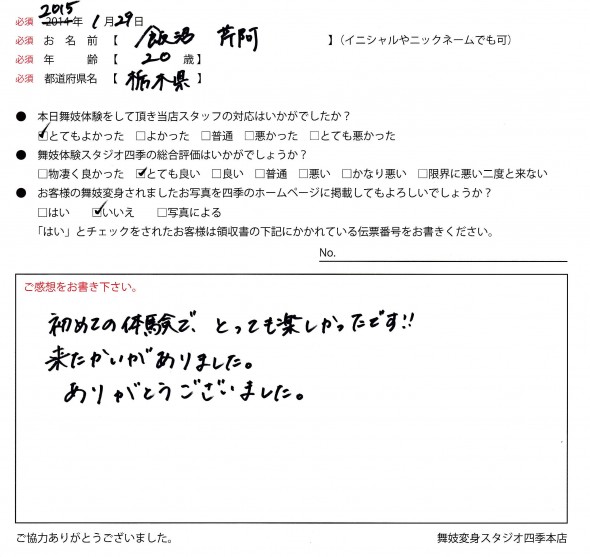 2015
必須 2014年 1月29日
必須 お名前【 飯沼 芹阿 】(イニシャルやニックネームでも可)
必須 年齢【 20 歳】
必須 都道府県名【 栃木県 】
● 本日舞妓体験をして頂き当店スタッフの対応はいかがでしたか?
☑とてもよかった □よかった □普通 □悪かった □とても悪かった
● 舞妓体験スタジオ四季の総合評価はいかがでしょうか?
□物凄く良かった ☑とても良い □良い □普通 □悪い □かなり悪い □限界に悪い二度と来ない
● お客様の舞妓変身されましたお写真を四季のホームページに掲載してもよろしいでしょうか?
□はい ☑いいえ □写真による
「はい」とチェックをされたお客様は領収書の下記にかかれている伝票番号をお書きください。
No.
ご感想をお書き下さい。
初めての体験で、とっても楽しかったです!!
来たかいがありました。
ありがとうございました。
ご協力ありがとうございました。 舞妓変身スタジオ四季本店